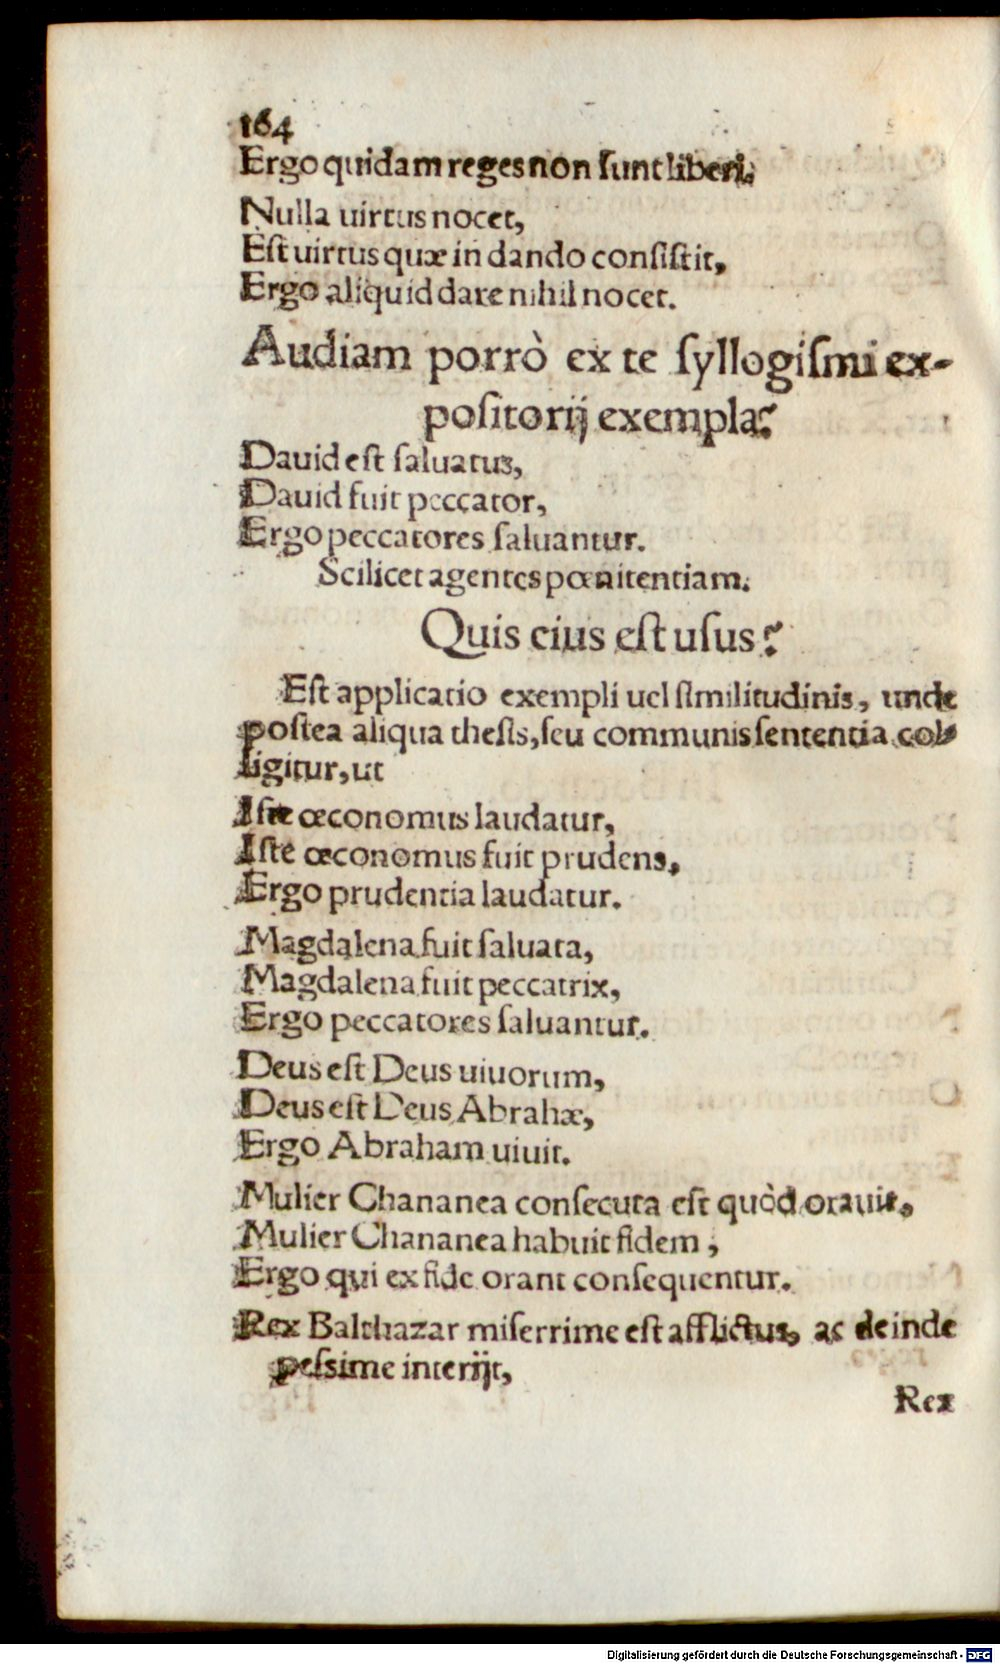 164
Ergo quidam reges non ſunt liberi.
Nulla uirtus nocet,
Eſt uirtus quæ in dando conſiſtit,
Ergo aliquid dare nihil nocet.
Audiam porrò ex te ſyllogiſmi ex-
poſitorij exempla?
Dauid eſt ſaluatus,
Dauid fuit peccator,
Ergo peccatores ſaluantur.
Scilicet agentes pœnitentiam.
Quis eius eſt uſus?
Eſt applicatio exempli uel ſimilitudinis, unde
poſtea aliqua theſis, ſeu communis ſententia col-
ligitur, ut
Iſte œconomus laudatur,
Iſte œconomus fuit prudens,
Ergo prudentia laudatur.
Magdalena fuit ſaluata,
Magdalena fuit peccatrix,
Ergo peccatores ſaluantur.
Deus eſt Deus uiuorum,
Deus eſt Deus Abrahæ,
Ergo Abraham uiuit.
Mulier Chananea conſecuta eſt quòd orauit,
Mulier Chananea habuit fidem,
Ergo qui ex fide orant conſequentur.
Rex Balthazar miſerrime eſt afflictus, ac deinde
peſsime interijt,
Rex
Digitalisierung gefördert durch die Deutsche Forschungsgemeinschaft - DFG